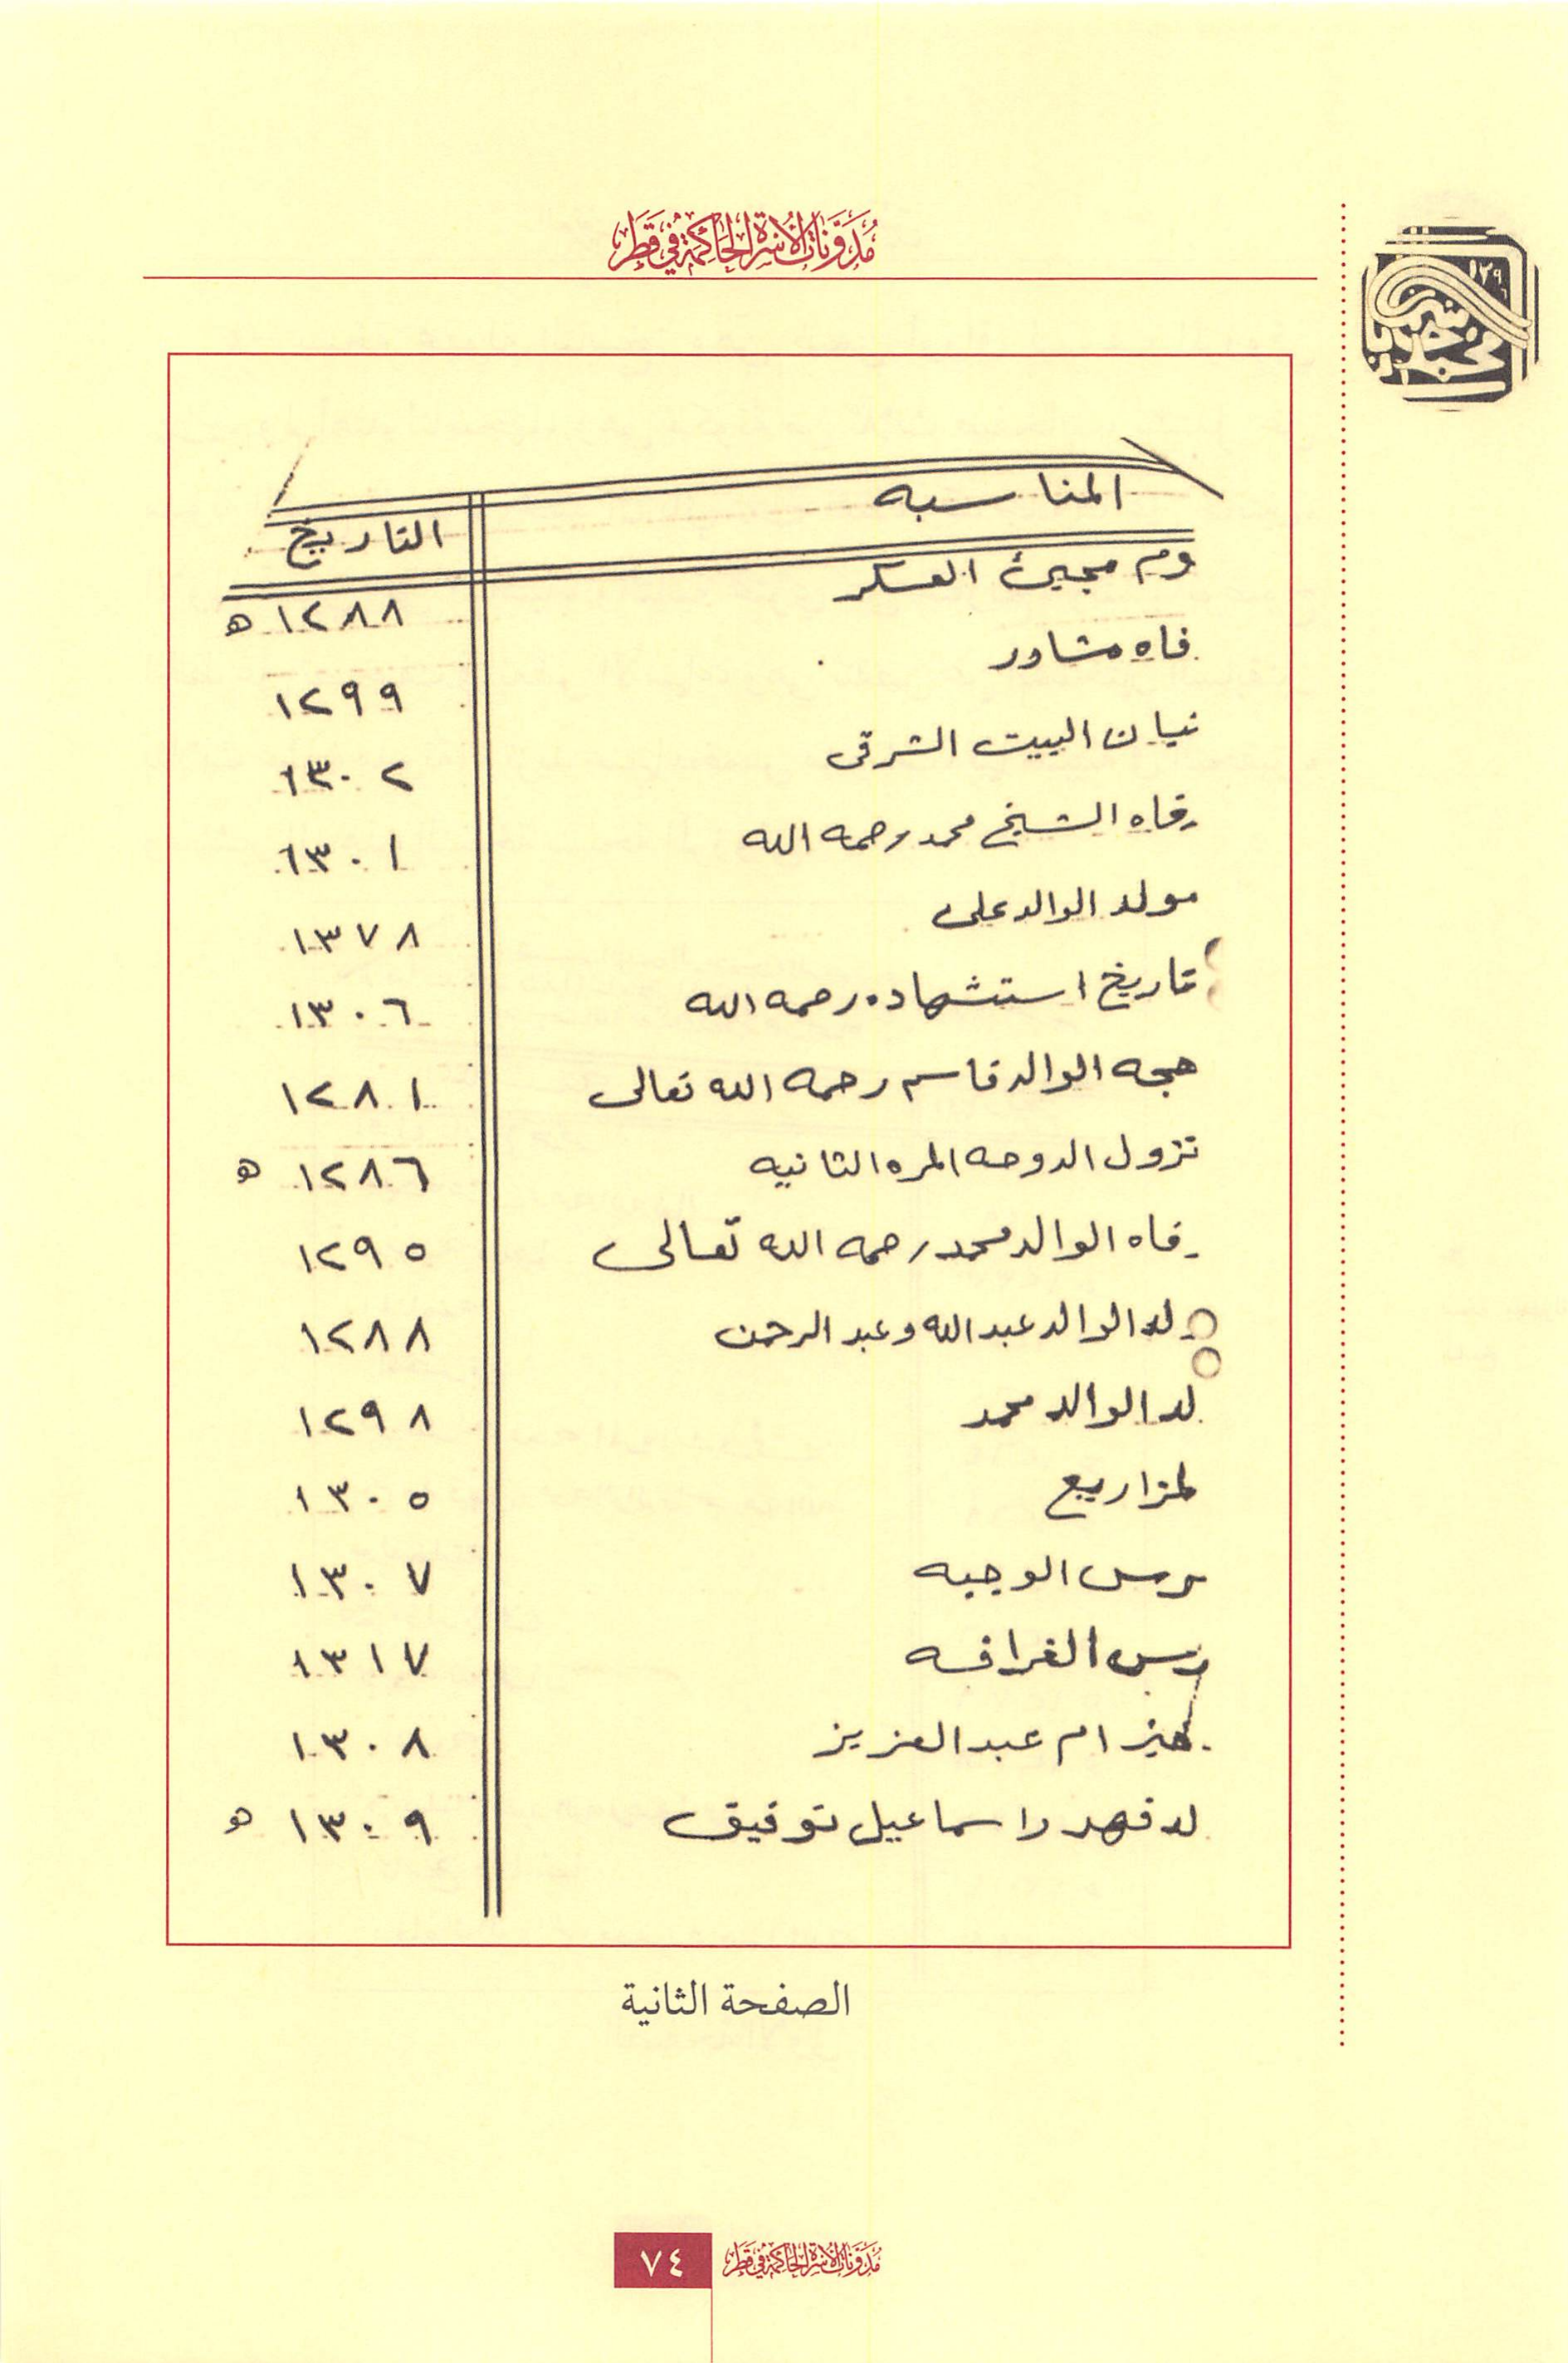 مُدَوَّنَاتُ الأُسْرَةِ الحَاكِمَةِ فِي قَطَر
المناسبه التاريخ
وم مجيئ العسكر ١٢٨٨ ه
فاه مشاور ١٢٩٩
نيان البيت الشرقى ١٣٠٢
وفاه الشيخ محمد رحمه الله ١٣٠١
مولد الوالد على ١٣٧٨
تاريخ استشهاده رحمه الله ١٣٠٦
حجه الوالد قاسم رحمه الله تعالى ١٢٨١
نزول الدوحه المره الثانيه ١٢٨٦ ه
وفاه الوالد محمد رحمه الله تعالى ١٢٩٥
ولد الوالد عبد الله وعبد الرحمن ١٢٨٨
لد الوالد محمد ١٢٩٨
لمزاريع ١٣٠٥
رس الوجبه ١٣٠٧
رس الغرافه ١٣١٧
ام عبد العزيز ١٣٠٨
لد فهد واسماعيل توفيق ١٣٠٩ ه
الصفحة الثانية
مُدَوَّنَاتُ الأُسْرَةِ الحَاكِمَةِ فِي قَطَر ٧٤